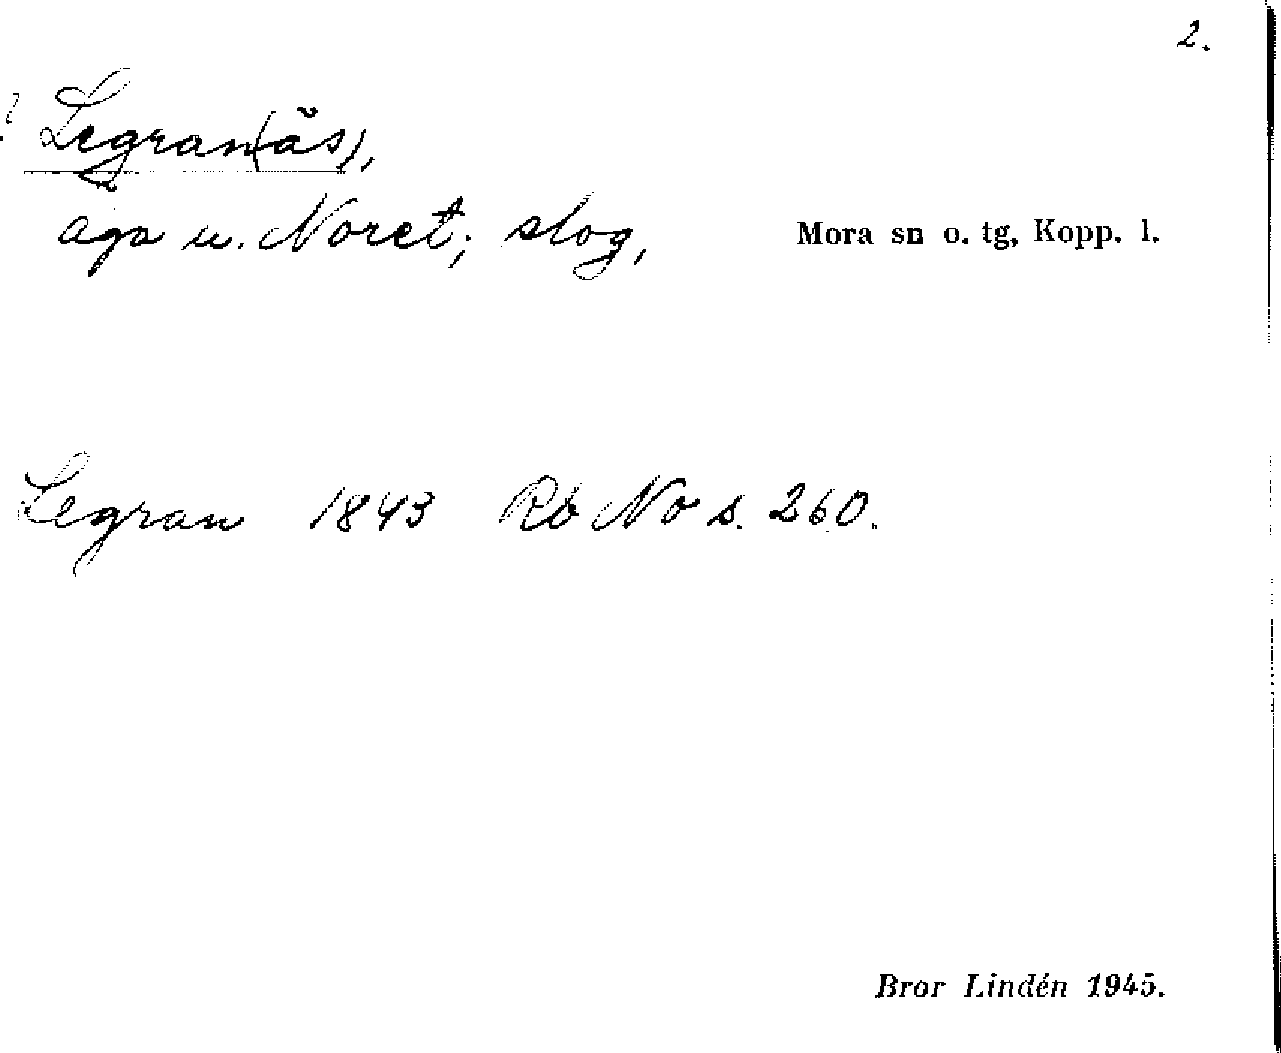 2.
? Legran(äs),
äga u. Noret; slog,
Mora sn o. tg, Kopp. l.
Legran 1843 Rb No s. 260.
Bror Lindén 1945.